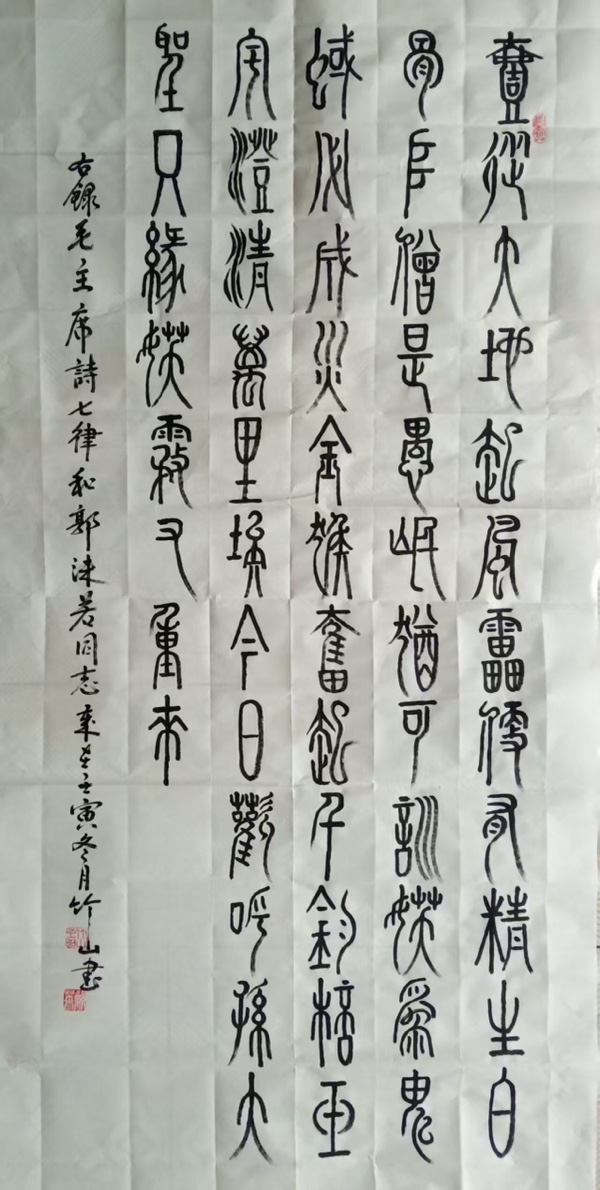 壹從大地起風雷便有精生白
骨堆僧是愚氓猶可訓妖為鬼
蜮必成災金猴奮起千鈞棓玉
宇澄清萬里埃今日歡呼孫大
聖只緣妖霧又重來
右錄毛主席詩七律和郭沫若同志歲在壬寅冬月竹山書